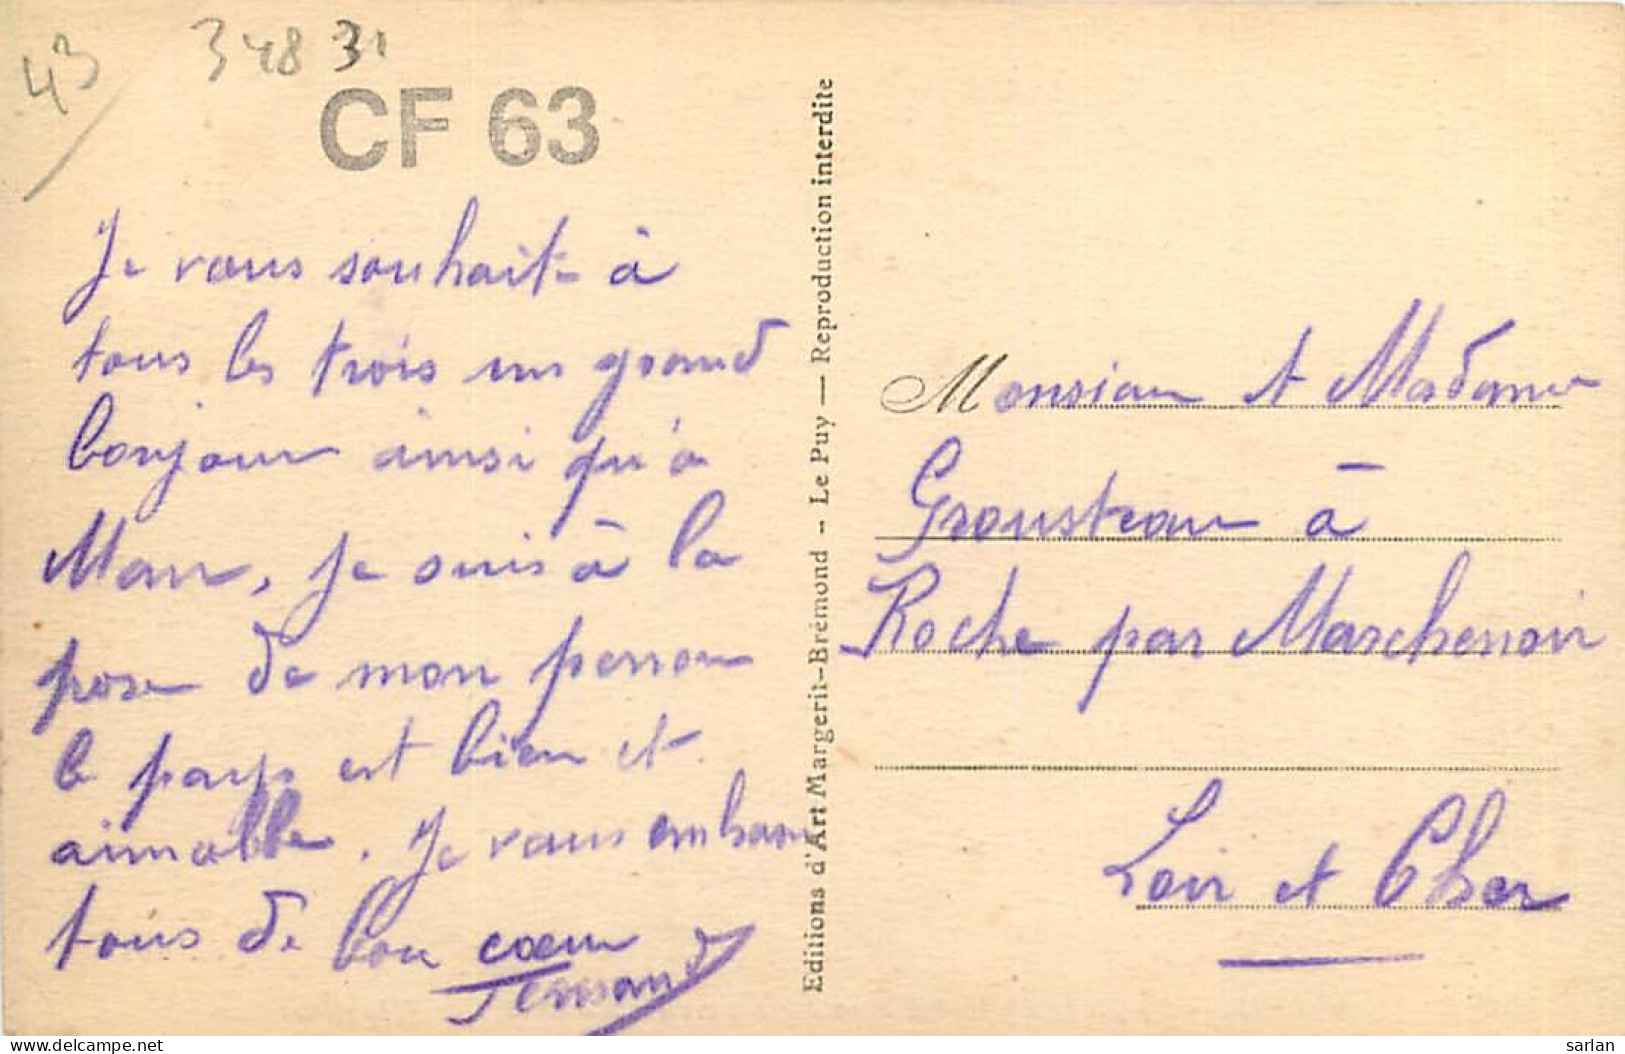 43
34831
CF 63
Je vous souhaite à
tous les trois un grand
bonjour ainsi qu'à
, je suis à la
de mon
le pays est bien et
aimable. Je vous embrasse
tous de bon coeur
Fernand
Editions d'Art Margerit-Brémond -- Le Puy — Reproduction interdite
Monsieur et Madame
Grousteau à
Roche par Marchenoir
Loir et Cher
www.delcampe.net
sarlan